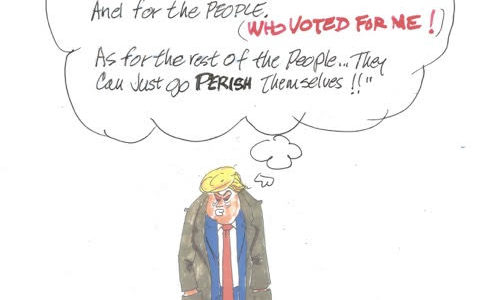 And for the PEOPLE.
(WHO VOTED FOR ME!)
As for the rest of the People... They
Can Just go PERISH Themselves!!"